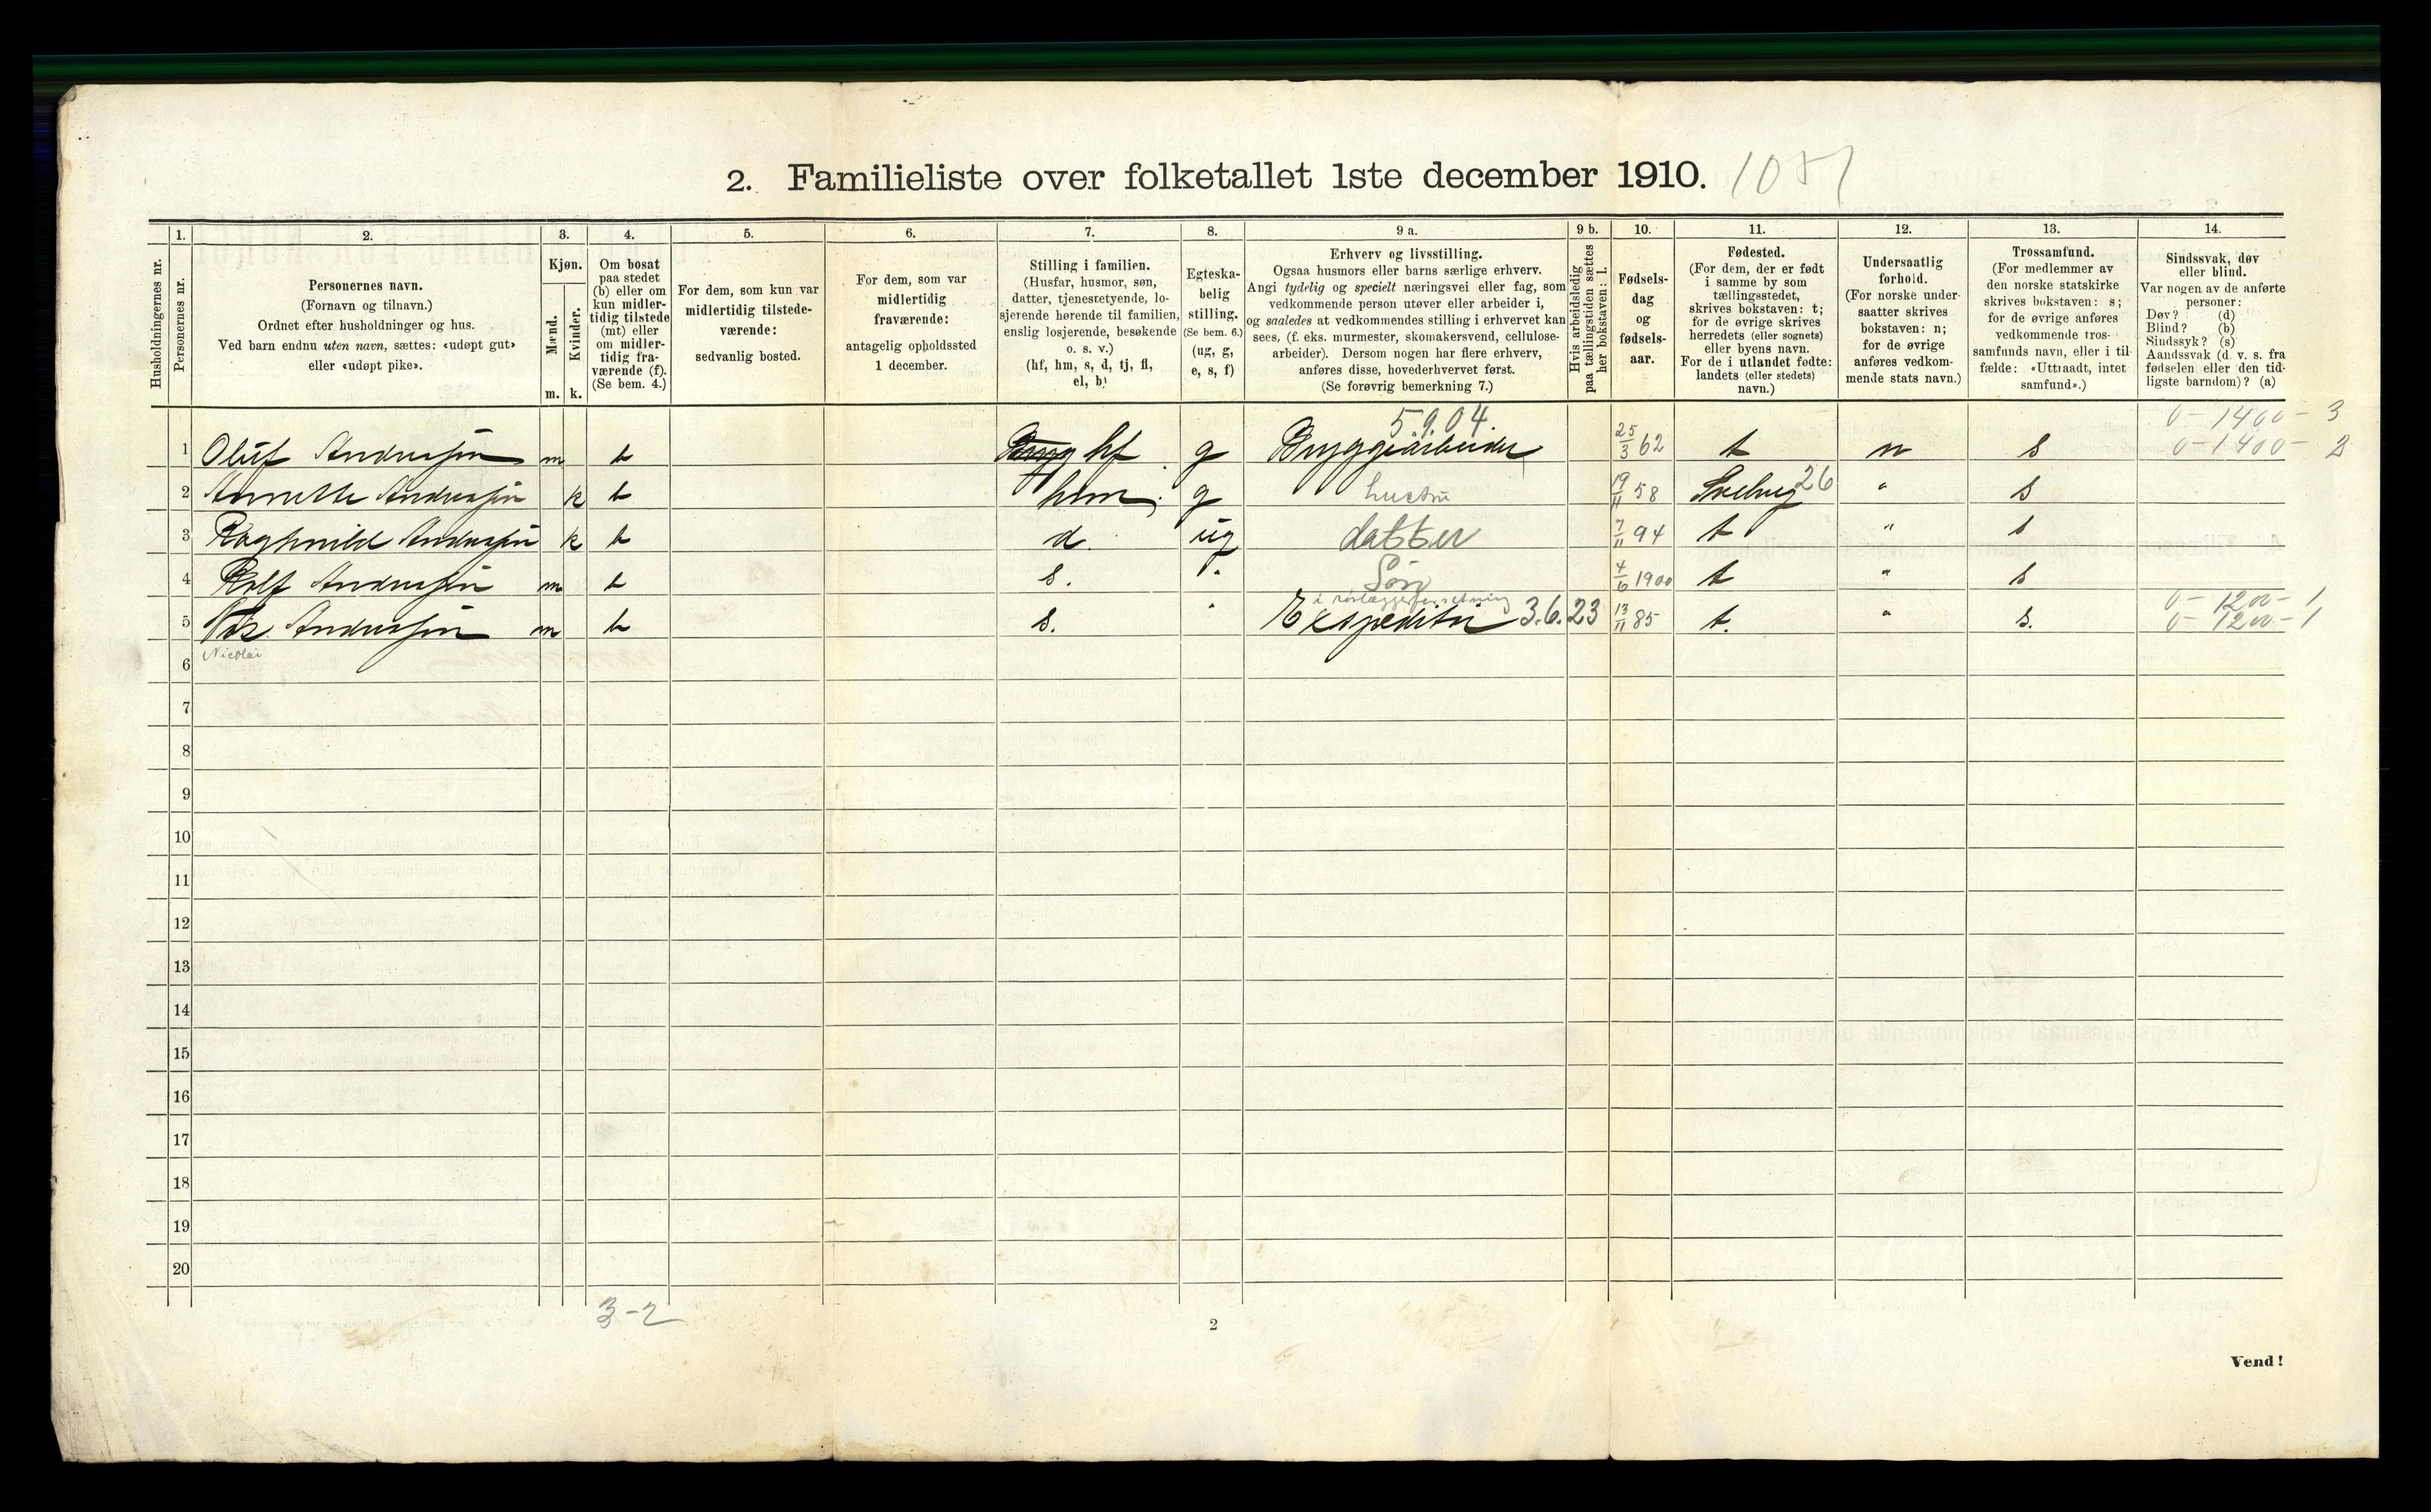 2. Familieliste over folketallet 1ste december 1910. 1051
Husholdningernes nr.
1.
Personernes nr.
2.
Personernes navn.
(Fornavn og tilnavn.)
Ordnet efter husholdninger og hus.
Ved barn endnu uten navn, sættes: «udøpt gut»
eller «udøpt pike».
3.
Kjøn.
Mænd.
Kvinder.
m. k.
4.
Om bosat
paa stedet
(b) eller om
kun midler-
tidig tilstede
(mt) eller
om midler-
tidig fra-
værende (f).
(Se bem. 4.)
5.
For dem, som kun var
midlertidig tilstede-
værende:
sedvanlig bosted.
6.
For dem, som var
midlertidig
fraværende:
antagelig opholdssted
1 december.
7.
Stilling i familien.
(Husfar, husmor, søn,
datter, tjenestetyende, lo-
sjerende hørende til familien,
enslig losjerende, besøkende
o. s. v.)
(hf, hm, s, d, tj, fl,
el, b)
8.
Egteska-
belig
stilling.
(Se bem. 6.)
(ug, g,
e, s, f)
9 a.
Erhverv og livsstilling.
Ogsaa husmors eller barns særlige erhverv.
Angi tydelig og specielt næringsvei eller fag, som
vedkommende person utøver eller arbeider i,
og saaledes at vedkommendes stilling i erhvervet kan
sees, (f. eks. murmester, skomakersvend, cellulose-
arbeider). Dersom nogen har flere erhverv,
anføres disse, hovederhvervet først.
(Se forøvrig bemerkning 7.)
9 b.
Hvis arbeidsledig
paa tællingstiden sættes
her bokstaven: l.
10.
Fødsels-
dag
og
fødsels-
aar.
11.
Fødested.
(For dem, der er født
i samme by som
tællingsstedet,
skrives bokstaven: t;
for de øvrige skrives
herredets (eller sognets)
eller byens navn.
For de i utlandet fødte:
landets (eller stedets)
navn.)
12.
Undersaatlig
forhold.
(For norske under-
saatter skrives
bokstaven: n;
for de øvrige
anføres vedkom-
mende stats navn.)
13.
Trossamfund.
(For medlemmer av
den norske statskirke
skrives bokstaven: s;
for de øvrige anføres
vedkommende tros-
samfunds navn, eller i til-
fælde: «Uttraadt, intet
samfund».)
14.
Sindssvak, døv
eller blind.
Var nogen av de anførte
personer:
Døv? (d)
Blind? (b)
Sindssyk? (s)
Aandssvak (d. v. s. fra
fødselen eller den tid-
ligste barndom)? (a)
5.9.04. 0-1400-3
1 Oluf Andersen m b hf g Bryggearbeider 25/3 62 t n s 0-1400-2
2 Annette Andersen k b hm. g hustru 19/11 58 Svelvig 26 " s
3 Ragnhild Andersen k b d. ug datter 7/11 94 t " s
4 Rolf Andersen m b s. " Søn 4/6 1900 t " s
i rørlæggerforretning 0-1200-1
5 Nic. Andersen m b s. " Expeditør 3.6.23 13/11 85 t. " s. 0-1200-1
6 Nicolai
7
8
9
10
11
12
13
14
15
16
17
18
19
20
3-2
2
Vend!